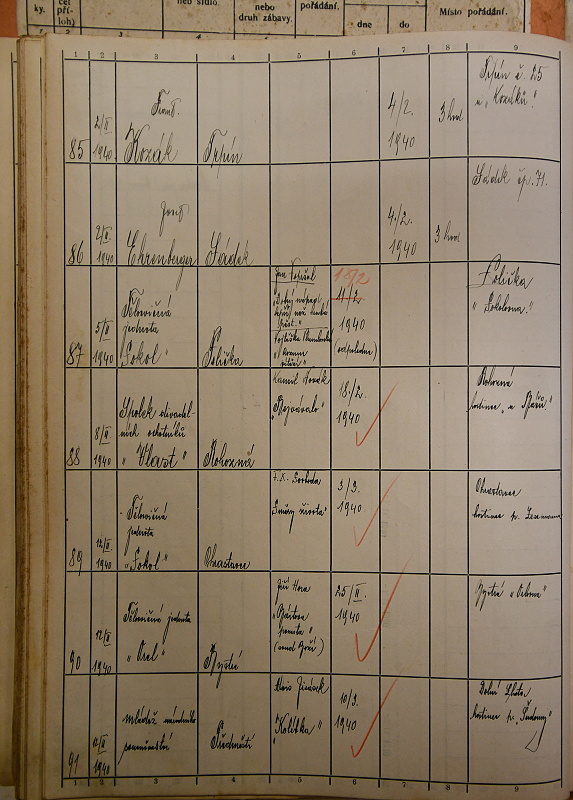 ky.
čet
pří-
loh)
neb sídlo.
nebo
druh zábavy.
pořádání.
dne
do
Místo pořádání.
1 2 3 4 5 6 7 8 9
85
2/II
1940
Frant.
Kozák
Trpín
4/2.
1940
3 hod
Trpín č. 25
u „Kozáků."
86
2/II
1940
Josef
Ehrenberger
Sádek
4./2.
1940
3 hod
Sádek čp. 71.
87
5/II
1940
Tělocvičná
jednota
Sokol"
Polička
Jan
18/2
11/2
1940
(odpoledne)
Polička
„Sokolovna."
88
8/II
1940
Spolek divadel-
ních ochotníků
„Vlast"
Rohozná
Kamil Novák
18./2.
1940
Rohozná
hostinec u
89
12/II
1940
Tělocvičná
jednota
„Sokol"
Chrastavec
F. X. Svoboda
Směry života"
3/3.
1940
Chrastavec
hostinec p.
90
12/II
1940
Tělocvičná jednota
„Orel"
Bystré
Jiří Hora
25/II.
1940
Bystré „Orlovna"
91
12/II
1940
Mládež národního
souručenství
Předměstí
Alois Jirásek
„Kolébka"
10/3.
1940
Dolní Lhota
hostinec p.
1 2 3 4 5 6 7 8 9